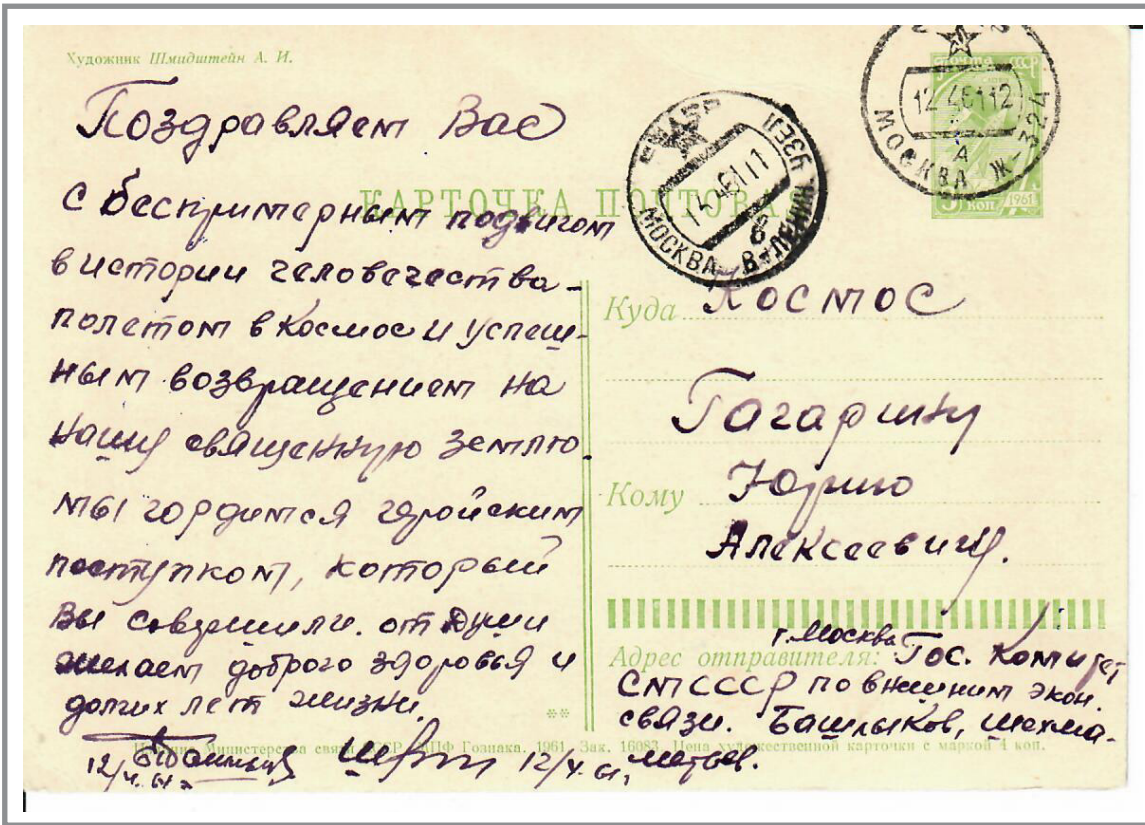 Художник Шмидштейн А. И.
Поздравляем Вас
с беспримерным подвигом
в истории человечества –
полетом в Космос и успеш-
ным возвращением на
нашу священную землю.
мы гордимся геройским
поступком, который
Вы совершили. от души
желаем доброго здоровья и
долгих лет жизни.
12/4.61г.
12/4.61,
КАРТОЧКА ПОЧТОВАЯ
МОСКВА
12 4 61 11
почта СССР
коп 1961
12 4 61 12
А
МОСКВА Ж-324
Куда Космос
Гагарину
Кому Юрию
Алексеевичу.
г. Москва
Адрес отправителя: Гос. Комитет
СМ СССР по внешним экон.
связи. Башлыков, Шахма-
метьев.
Издание Министерства связи СССР. МПФ Гознака. 1961. Зак. 16083. Цена художественной карточки с маркой 4 коп.